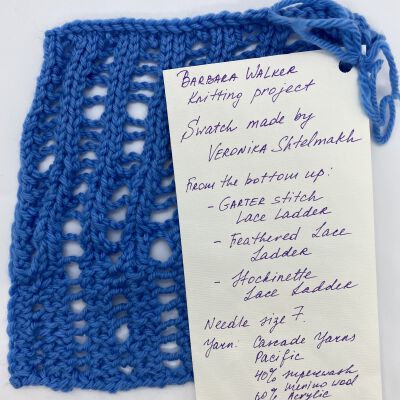 BARBARA WALKER
Knitting project
Swatch made by
VERONIKA Shtelmakh
From the bottom up:
- GARTER stitch
Lace Ladder
- Feathered Lace
Ladder
- Stockinette
Lace Ladder
Needle size 7.
Yarn: Cascade Yarns
Pacific
40% superwash
merino wool
60% Acrylic